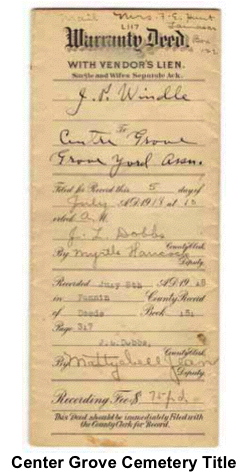 Mail Mrs. F. E. Hunt
L117
Box
Warranty Deed
WITH VENDOR'S LIEN.
Single and Wifes Separate Ack.
J. P. Windle
To
Center Grove
Grove Yord Assn.
Filed for Record this 5 day of
July A.D. 1918 at 10
o'clock A. M.
J. L. Dobbs
County Clerk
By Myrtle Hancock
Deputy
Recorded July 8th A.D. 19
in Fannin County Record
of Deeds Book 151
Page 317
J. L. Dobbs,
County Clerk
By
Deputy.
Recording Fee $ 75 pd
This Deed should be immediately Filed with
the County Clerk for Record.
Center Grove Cemetery Title